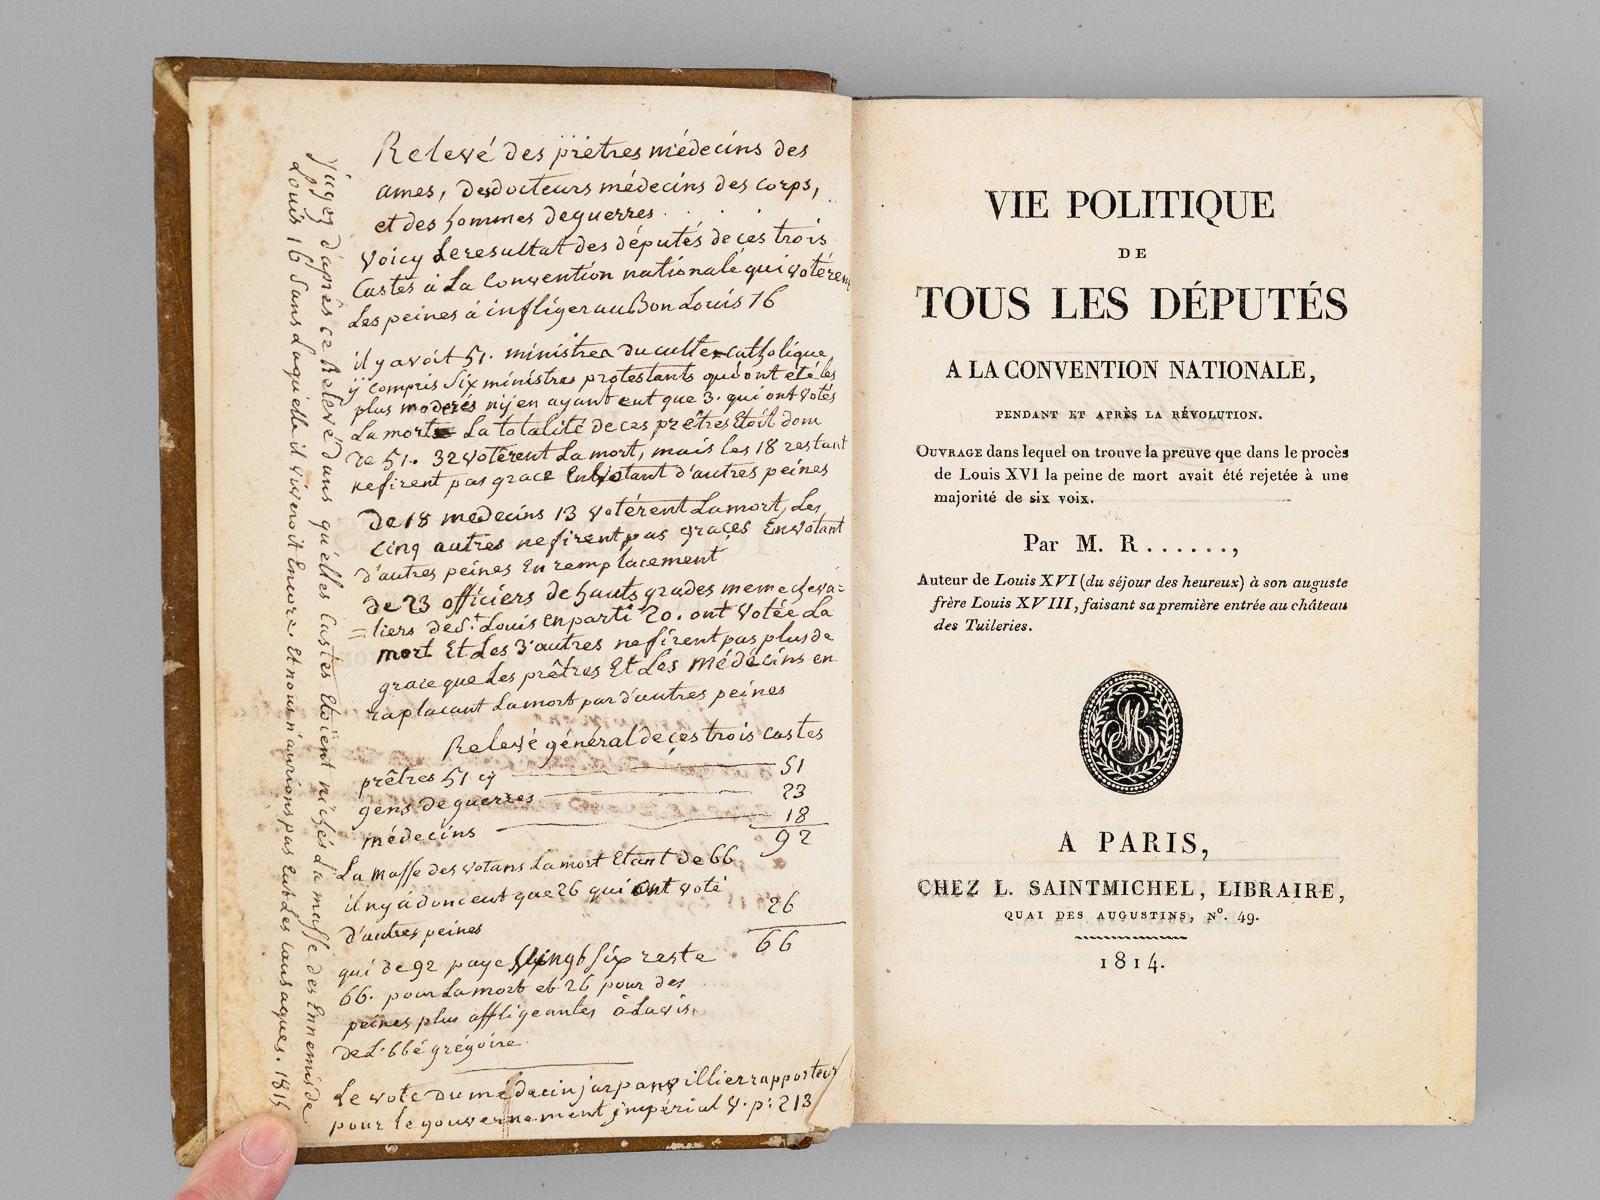 Relevé des prêtres médecins des
ames, des docteurs médecins des corps,
et des hommes de guerres
voicy le resultat des députés de ces trois
castes à la Convention nationale qui votérent
les peines à infliger au Bon Louis 16
il y avoit 51. ministres du culte catholique
y compris six ministres protestants qui ont été les
plus moderés n'y en ayant eut que 3. qui ont votés
la mort la totalité de ces prêtres étoit donc
de 51. 32 votèrent la mort, mais les 18 restant
ne firent pas grace en votant d'autres peines
de 18 medecins 13 votérent la mort, les
cinq autres ne firent pas graces en votant
d'autres peines en remplacement
de 23 officiers de hauts grades meme cheva=
=liers de St. Louis en parti 20. ont votée la
mort et les 3 autres ne firent pas plus de
grace que les prêtres et les médécins en
raplacant la mort par d'autres peines
Relevé général de ces trois castes
prêtres 51 cy 51
gens de guerres 23
médecins 18
92
La masse des votans la mort étant de 66
il n'y à donc eut que 26 qui ont voté
d'autres peines 26
66
qui de 92 paye vingt six reste
66. pour la mort et 26 pour des
peines plus affligeantes à l'avis
de l'bbé grégoire
le vote du médecin rapporteur
pour le gouvernement impérial V. p: 213
jugez d'après ce Relevé dans qu'elles castes étoient nichés la masse des Ennemis de
Louis 16 sans laquelle il viveroit encore. et nous n'aurions pas eut les cosaques. 1815
VIE POLITIQUE
DE
TOUS LES DÉPUTÉS
A LA CONVENTION NATIONALE,
PENDANT ET APRÈS LA RÉVOLUTION.
OUVRAGE dans lequel on trouve la preuve que dans le procès
de Louis XVI la peine de mort avait été rejetée à une
majorité de six voix.
Par M. R......,
Auteur de Louis XVI (du séjour des heureux) à son auguste
frère Louis XVIII, faisant sa première entrée au château
des Tuileries.
A PARIS,
CHEZ L. SAINTMICHEL, LIBRAIRE,
QUAI DES AUGUSTINS, N°. 49.
1814.